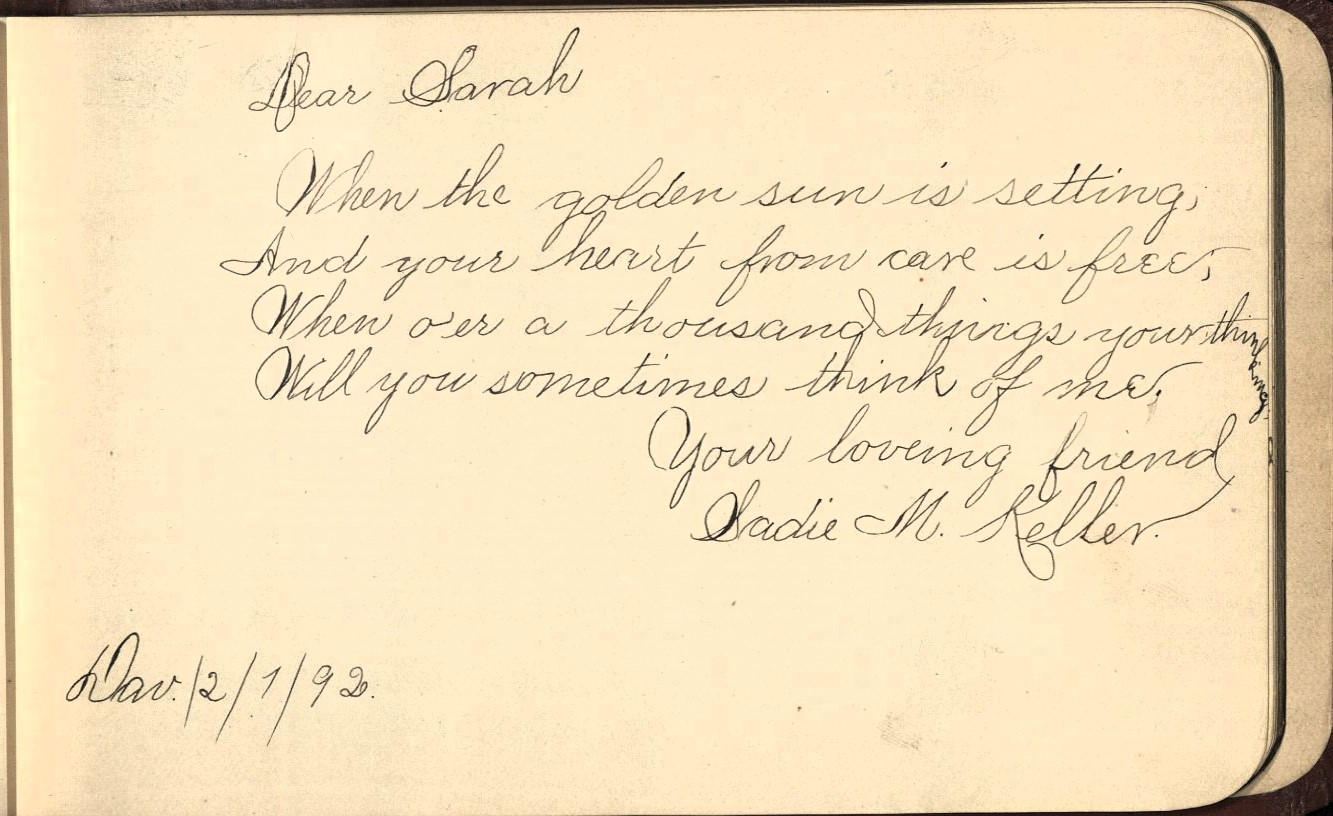 Dear Sarah
When the golden sun is setting,
And your heart from care is free,
When o'er a thousand things your thinking.
Will you sometimes think of me,
Your loveing friend
Sadie M. Keller.
Dav./2/1/92.